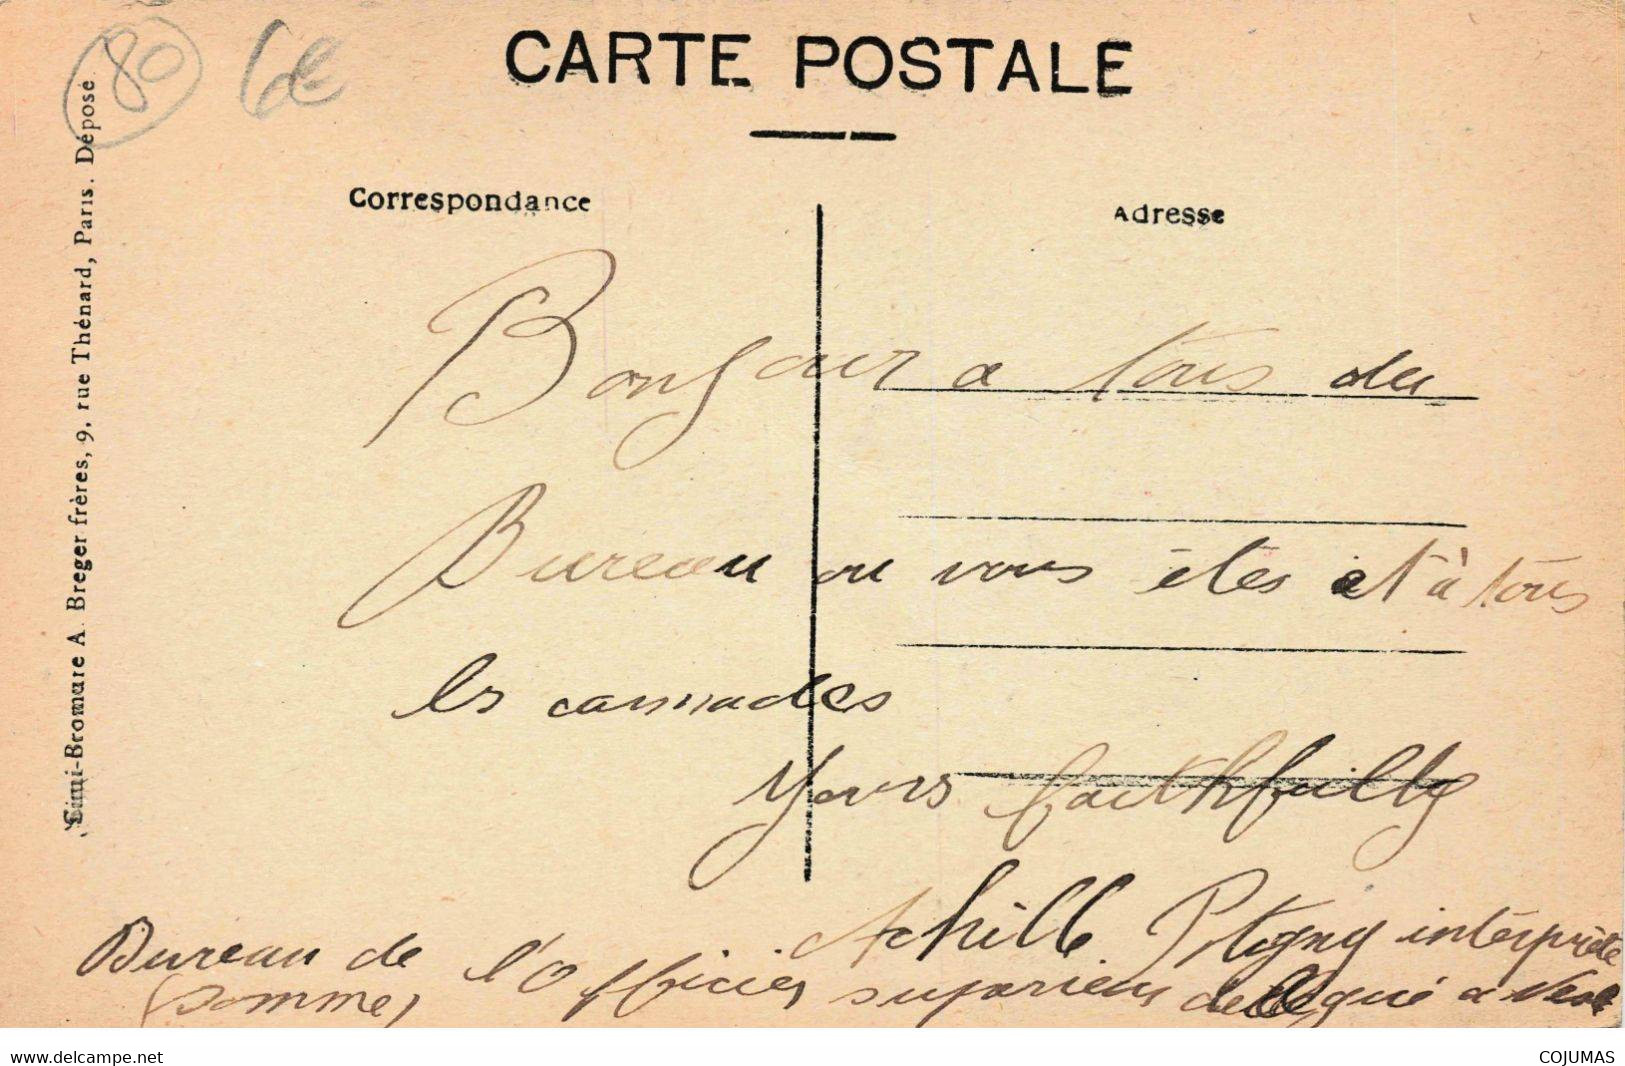 80 6€
CARTE POSTALE
Correspondance
Adresse
Simi-Bromure A. Breger frères, 9, rue Thénard, Paris. Déposé
Bonjour a tous du
Bureau ou vous êtes et à tous
les camades
Yours faithfully
Achille interprète
Bureau de l'Officier superieur delegué a
(Somme)
www.delcampe.net
COJUMAS